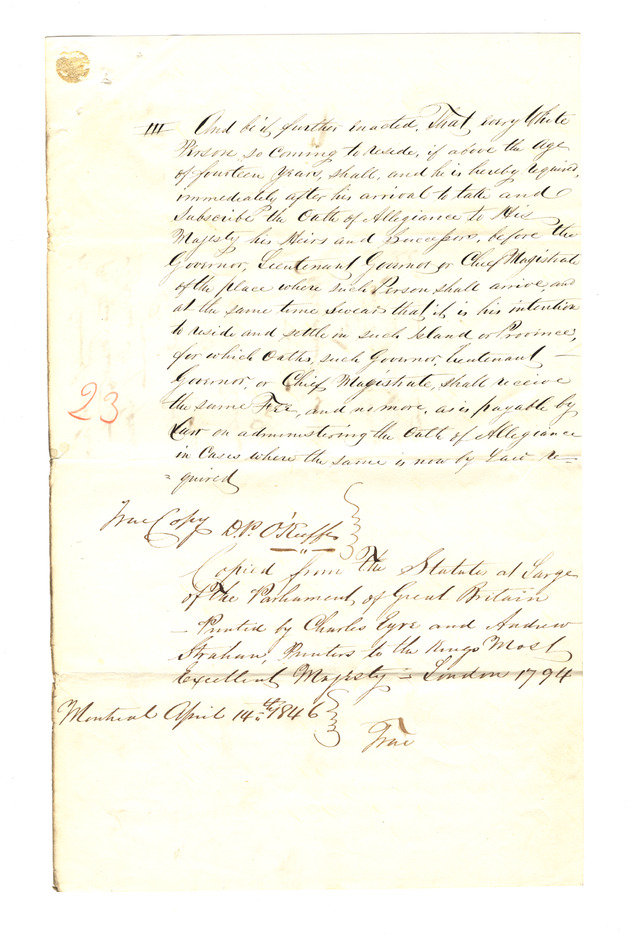 III And be it further enacted, That every White
Person so coming to reside, if above the Age
of fourteen Years, shall, and he is hereby required,
immediately after his arrival to take and
Subscribe the Oath of Allegiance to His
Majesty his Heirs and Successors, before the
Governor, Lieutenant Governor or Chief Magistrate
of the place where such Person shall arrive, and
at the same time Swear that it is his intention
to reside and settle in such Island or Province,
for which Oaths, such Governor, Lieutenant –
Governor, or Chief Magistrate, shall receive
the same Fee, and no more, as is payable by
Law on administering the Oath of Allegiance
in Cases where the same is now by Law re=
=quired
23
True Copy D.P. O'Keeffe
Copied from the Statutes at Large
of the Parliament of Great Britain
– Printed by Charles Eyre and Andrew
Strahan, Printers to the Kings Most
Excellent Majesty = London 1794
Montreal April 14th 1846
True